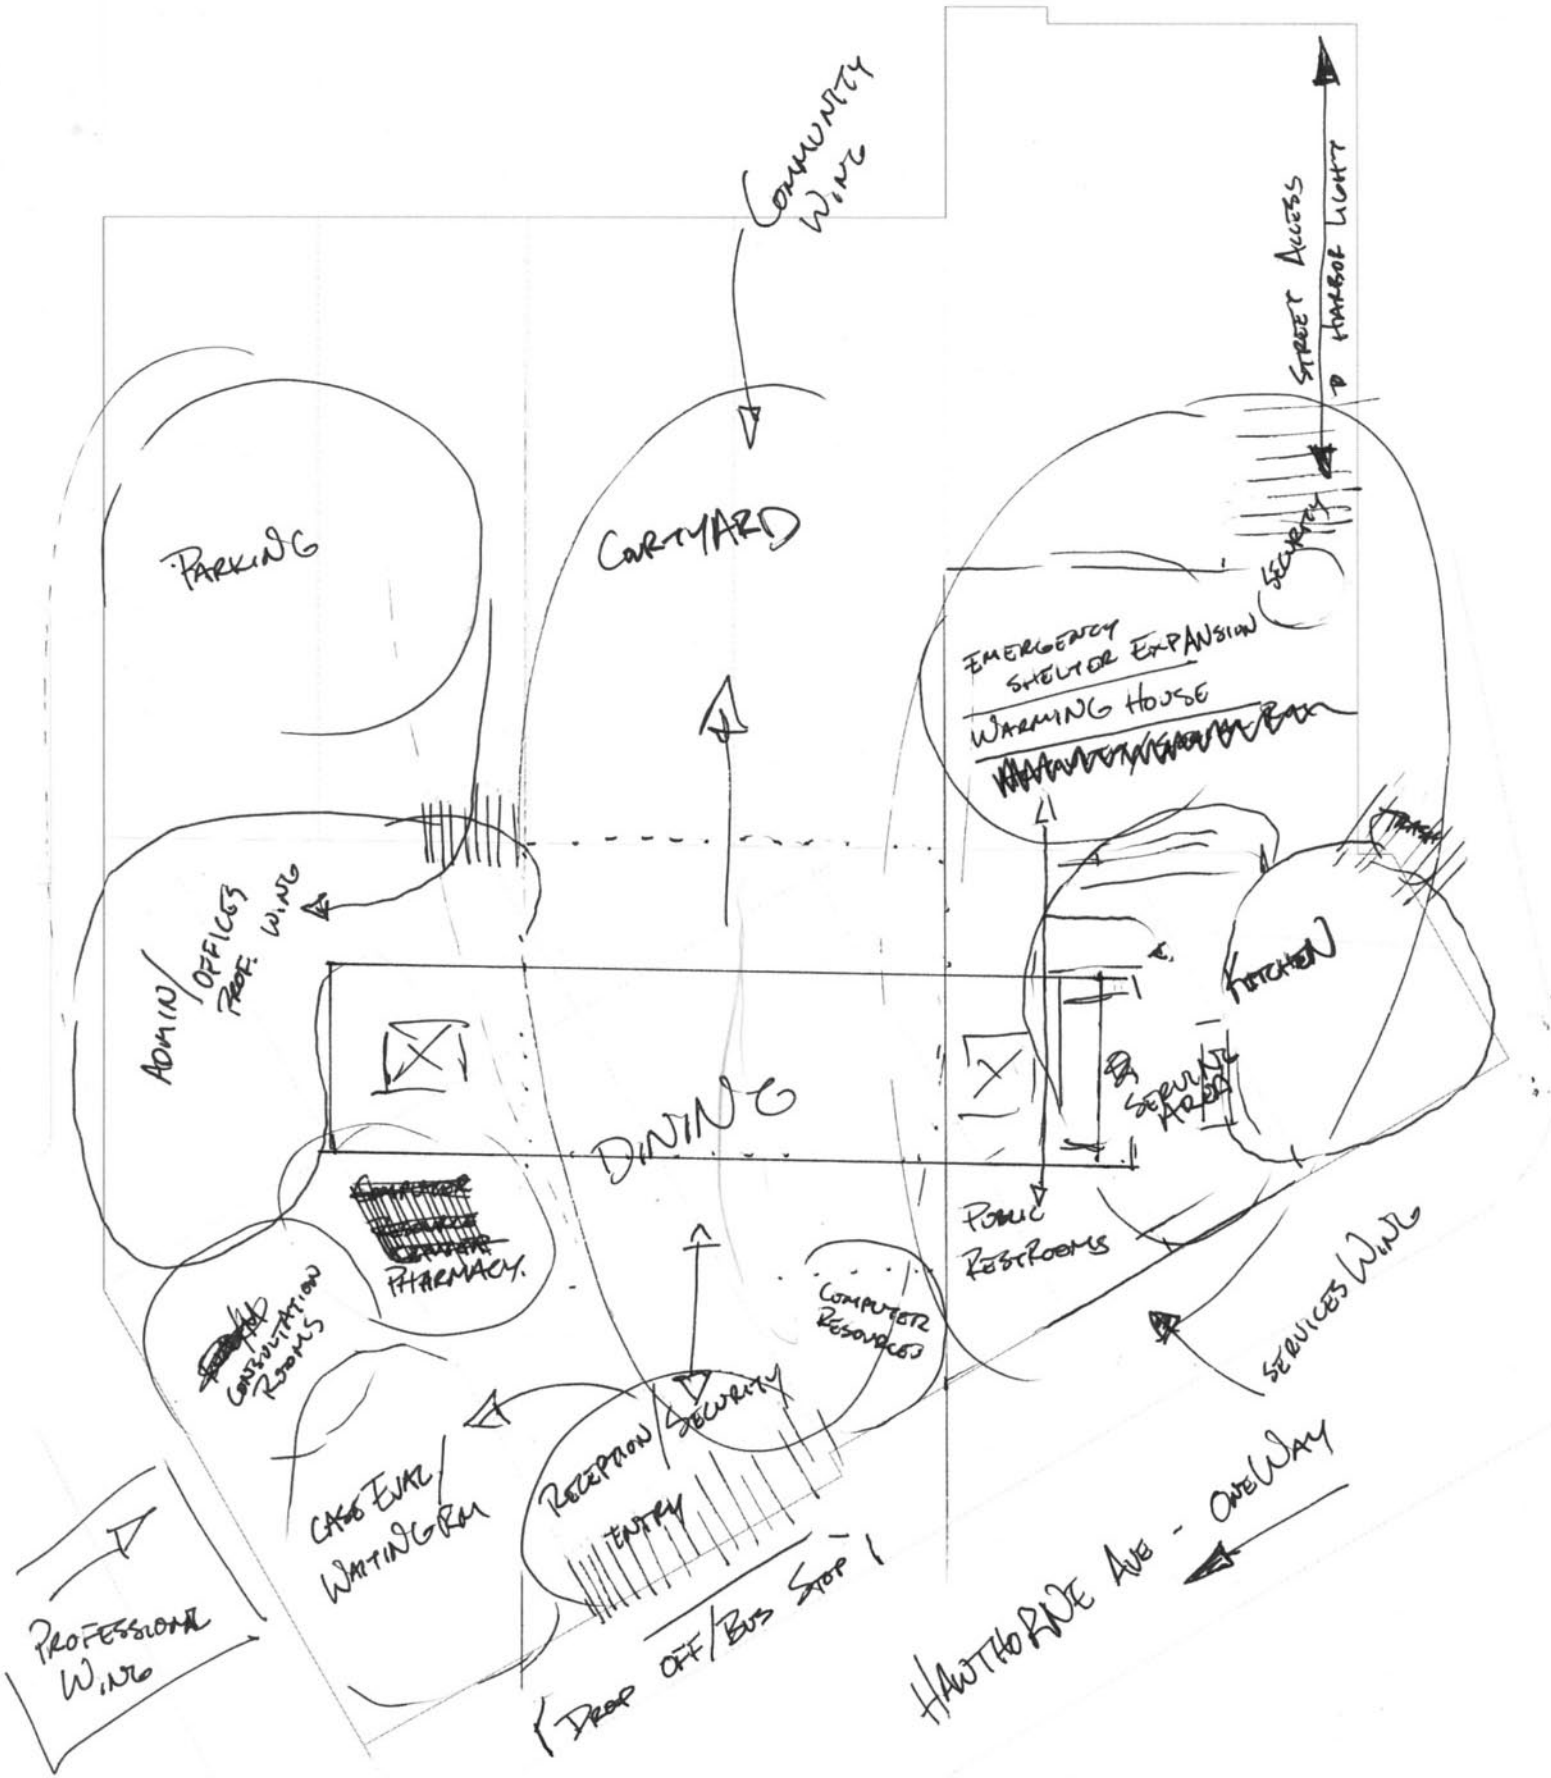 COMMUNITY
WING
STREET ACCESS
TO HARBOR LIGHT
PARKING
COURTYARD
SECURITY
EMERGENCY
SHELTER EXPANSION
WARMING HOUSE
TRASH
ADMIN/
OFFICES
PROF. WING
KITCHEN
SERVING
AREA
DINING
PUBLIC
RESTROOMS
COMPUTER
RESOURCE
PHARMACY.
CONSULTATION
ROOMS
COMPUTER
RESOURCES
SERVICES WING
CASE EVAL/
WAITING RM
RECEPTION/SECURITY
ENTRY
DROP OFF/BUS STOP
HAWTHORNE AVE - ONE WAY
PROFESSIONAL
WING